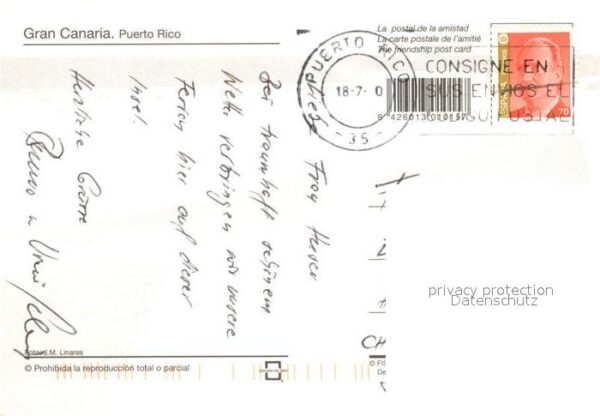 Gran Canaria. Puerto Rico
La postal de la amistad
La carte postale de l'amitié
The friendship post card
PUERTO RICO
18-7- 0
-35-
CONSIGNE EN
SUS ENVIOS EL
ESPAÑA
70
8 426013 000157
Liebe Frau Huser
Bei traumhaft schönem
Wetter verbringen wir unsere
Ferien hier auf dieser
Insel.
Herzliche Grüsse
Bruno u.
CH
privacy protection
Datenschutz
Foto: J.M. Linares
© Prohibida la reproducción total o parcial
© FIS
De